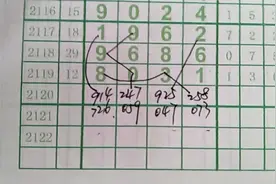 2116 15 9 0 2 4 1 5
2117 18 1 6 6 2 0 7
2118 29 9 6 8 6 7 2
2119 12 8 0 3 1 3 5
2120 914 247 925 258
2121 726 059 047 073
2122